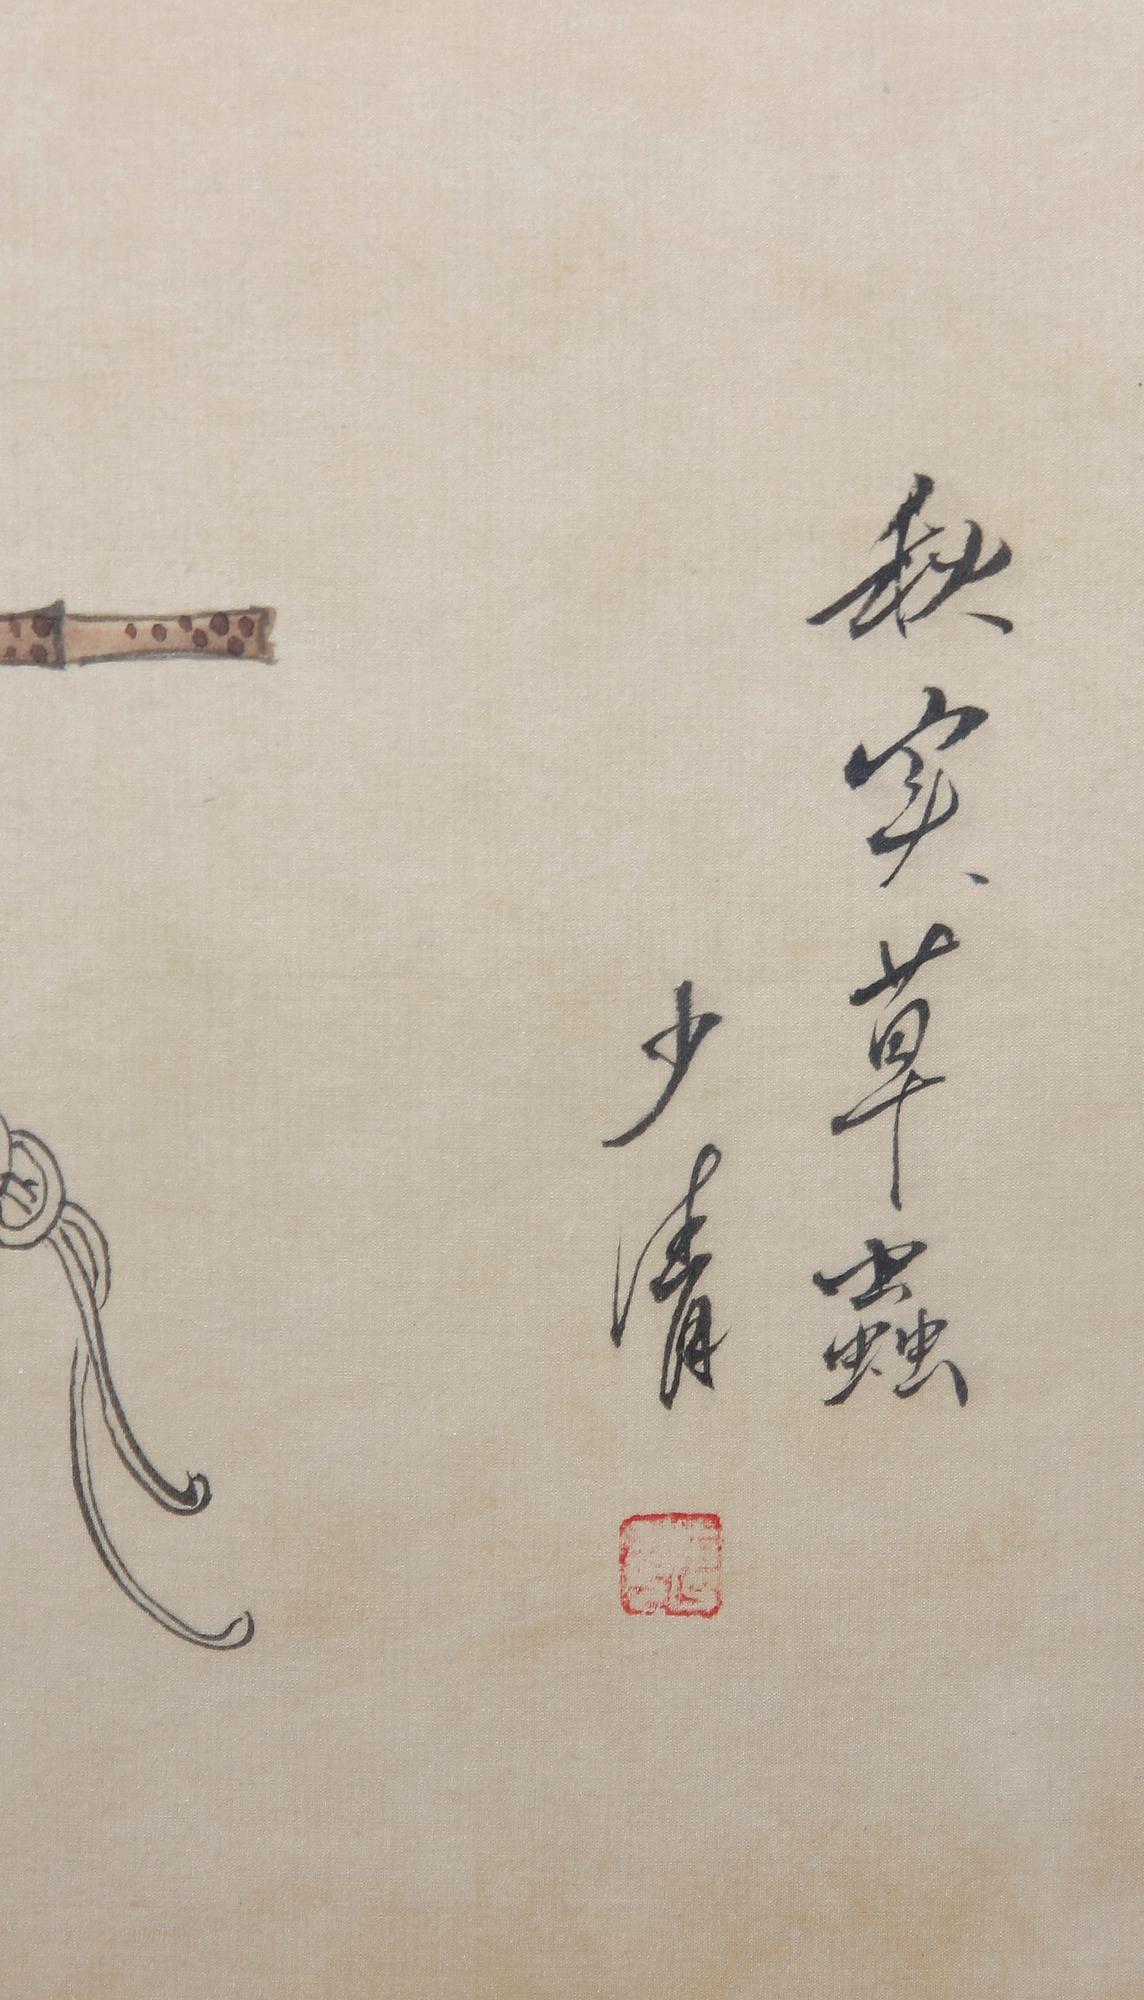 秋实草蟲
少清